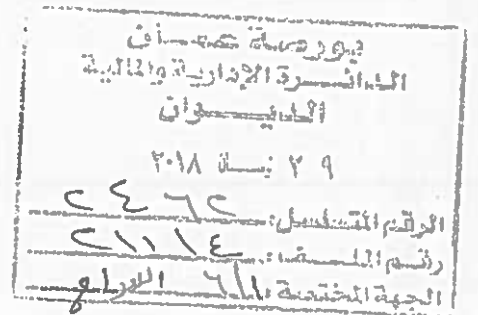 بورصة عمان
الدائرة الإدارية والمالية
الديوان
٢٩ نيسان ٢٠١٨
الرقم المتسلسل: ٢٤٦٢
رقم الملف: ٢١١١٤
الجهة المختصة: ٦/١